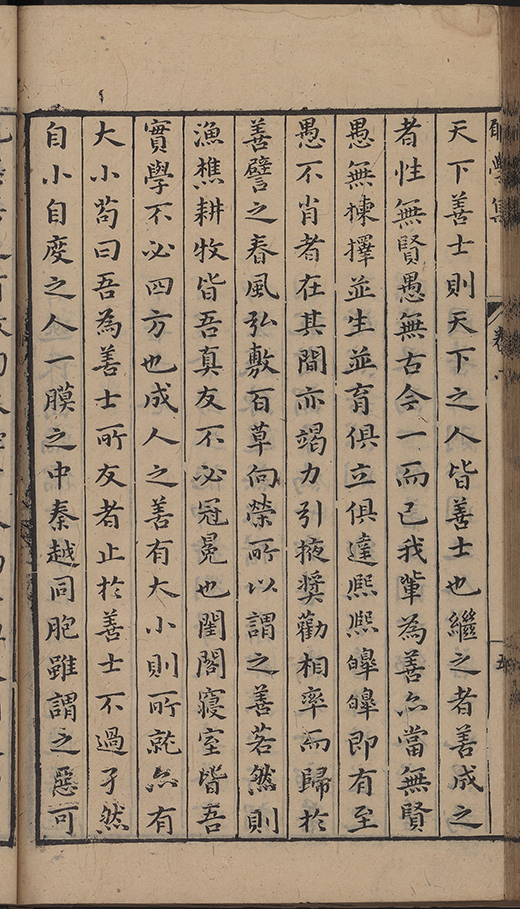 學集
卷
五
天下善士則天下之人皆善士也繼之者善成之
者性無賢愚無古今一而已我輩為善亦當無賢
愚無揀擇並生並育俱立俱達熙熙皥皥即有至
愚不肖者在其間亦竭力引掖奬勸相率而歸於
善譬之春風弘敷百草向榮所以謂之善若然則
漁樵耕牧皆吾真友不必冠冕也閨閣寢室皆吾
實學不必四方也成人之善有大小則所就亦有
大小苟曰吾為善士所友者止於善士不過孑然
自小自度之人一膜之中秦越同胞雖謂之惡可